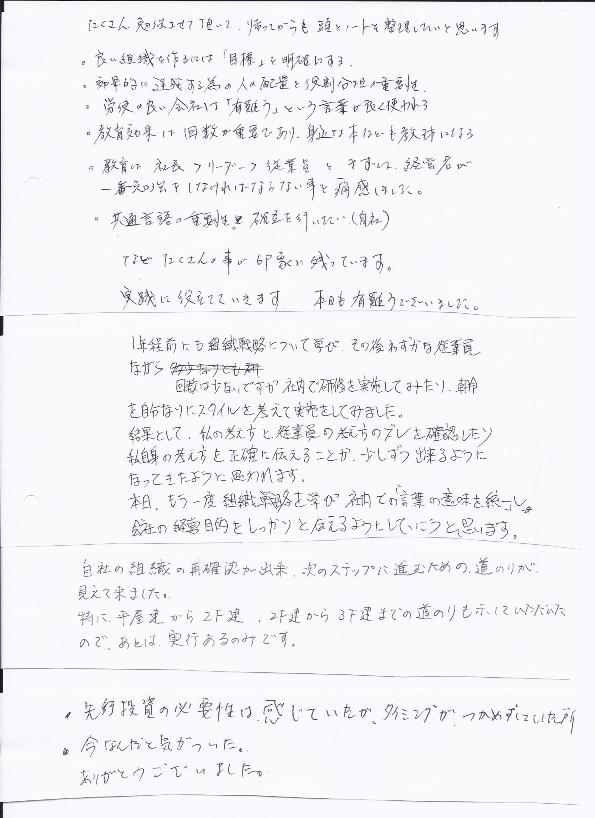 たくさん勉強させて頂いて、帰ってからも頭とノートを整理したいと思います
・良い組織を作るには「目標」を明確にする。
・効果的に達成する為の人の配置と役割分担の重要性
・労使の良い会社は「有難う」という言葉が良く使われる
・教育効果は回数が重要であり、身近な本なども教材になる
・教育は社長→リーダー→従業員とまずは、経営者が
一番勉強をしなければならない事を痛感しました。
・共通言語の重要性と確立を行いたい(自社)
などたくさんの事が印象に残っています。
実践に役立てていきます 本日も有難うございました。
1年程前にも組織戦略について学び、その後わずかな従業員
ながら
回数は少ないですが社内で研修を実施してみたり、朝礼
を自分なりにスタイルを考えて実施をしてみました。
結果として、私の考え方と従業員の考え方のブレを確認したり
私自身の考え方を正確に伝えることが、少しずつ出来るように
なってきたように思われます。
本日、もう一度組織戦略を学び 社内での「言葉の意味を統一」し。
会社の経営目的をしっかりと伝えるようにしていこうと思います。
自社の組織の再確認が出来、次のステップに進むための、道のりが、
見えて来ました。
特に、平屋建から2F建、2F建から3F建までの道のりも示していただいた
ので、あとは、実行あるのみです。
・先行投資の必要性は、感じていたが、タイミングが、つかめずにいた所
・今なんだと気がついた。
ありがとうございました。